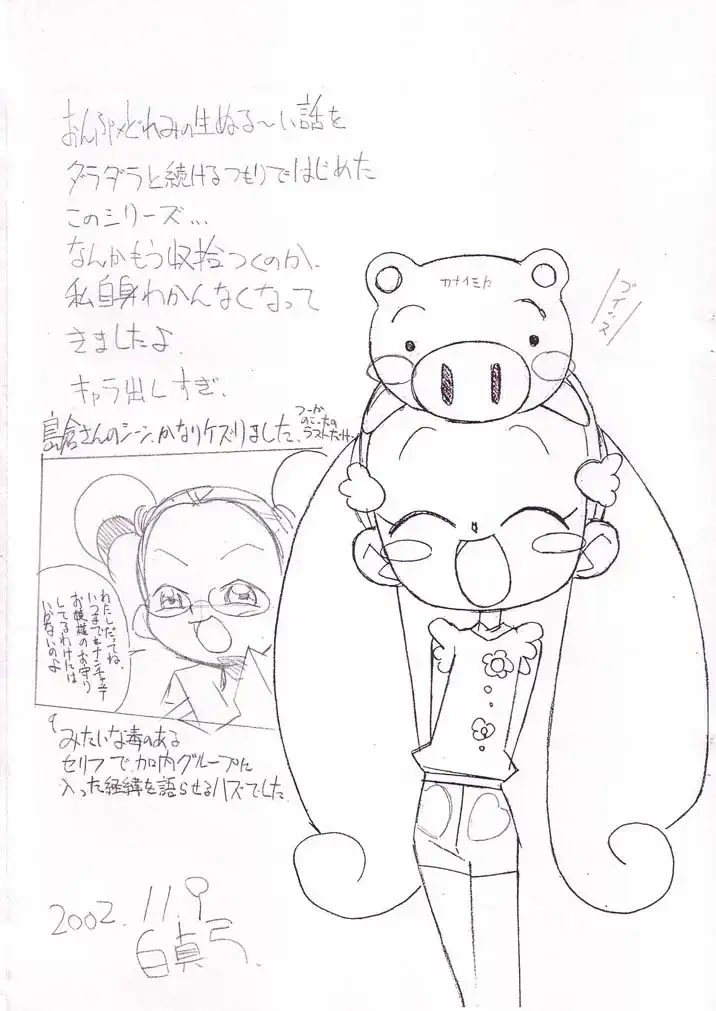 おんぷ×どれみの生ぬる〜い話を
ダラダラと続けるつもりではじめた
このシリーズ...
なんかもう収拾つくのか、
私自身わかんなくなって
きましたよ.
キャラ出しすぎ.
島倉さんのシーン、かなりケズリました.
つーか
のこったの
ラストだけ..
カナイミカ
ブイッス
わたしだってね、
いつまでもナンチャッテ
お嬢様のお守り
してるわけには
いかないのよ
みたいな毒のある
セリフで加内グループに
入った経緯を語らせるハズでした.
2002. 11.9
白真弓.